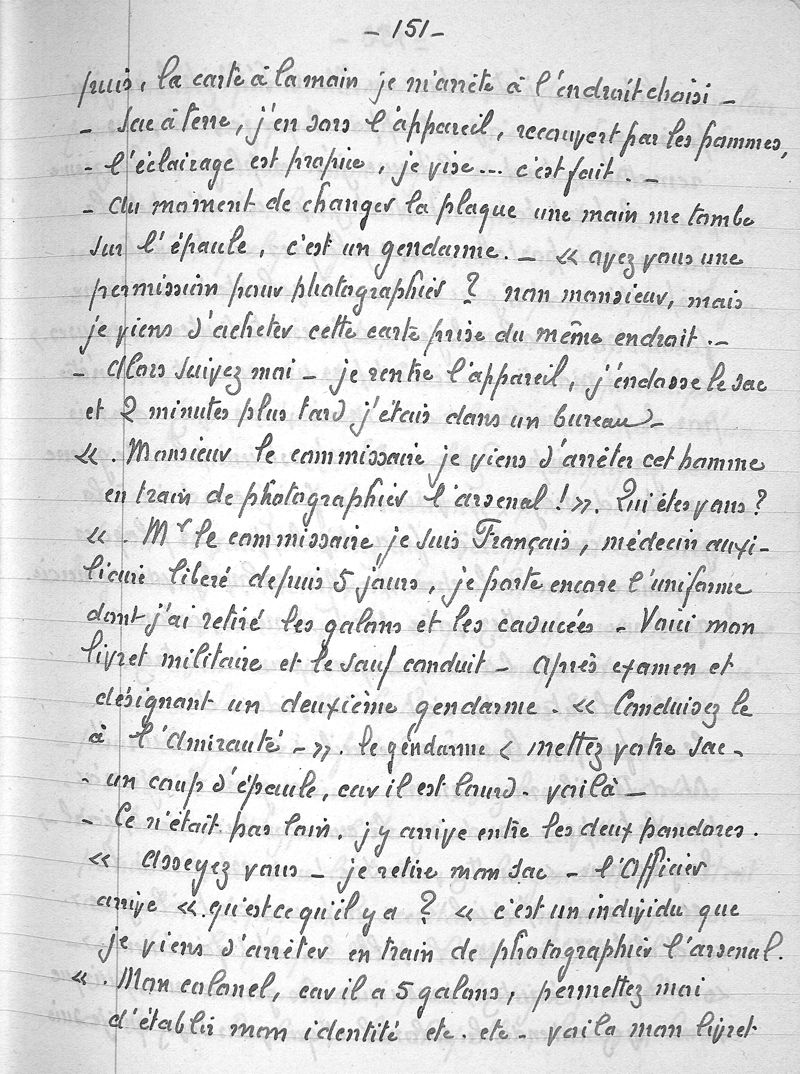 - 151 -
puis, la carte à la main je m'arrête à l'endroit choisi -
- Sac à terre, j'en sors l'appareil, recouvert par les pommes,
- l'éclairage est propice, je vise... c'est fait. -
- Au moment de changer la plaque une main me tombe
sur l'épaule, c'est un gendarme. - « avez vous une
permission pour photographier ? non monsieur, mais
je viens d'acheter cette carte prise du même endroit. -
- Alors suivez moi - je rentre l'appareil, j'endosse le sac
et 2 minutes plus tard j'étais dans un bureau -
«. Monsieur le commissaire je viens d'arrêter cet homme
en train de photographier l'arsenal ! ». Qui êtes vous ?
«. Mr le commissaire, je suis Français, médecin auxi-
liaire libéré depuis 5 jours, je porte encore l'uniforme
dont j'ai retiré les galons et les caducées - Voici mon
livret militaire et le sauf conduit - Après examen et
désignant un deuxième gendarme. « Conduisez le
à l'Amirauté - ». le gendarme < mettez votre sac -
- un coup d'épaule, car il est lourd. voilà -
- Ce n'était pas loin. j'y arrive entre les deux pandores.
« Asseyez vous - je retire mon sac - l'Officier
arrive «. qu'est ce qu'il y a ? « c'est un individu que
je viens d'arrêter en train de photographier l'arsenal.
«. Mon colonel, car il a 5 galons, permettez moi
d'établir mon identité etc. etc - voila mon livret